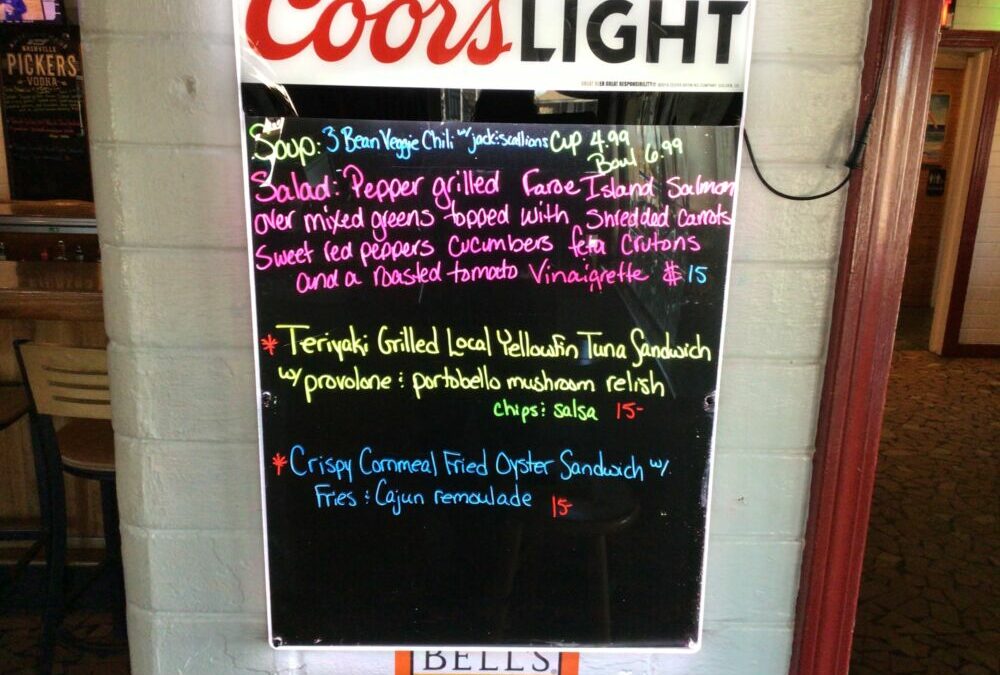 Coors LIGHT
GREAT BEER GREAT RESPONSIBILITY
NASHVILLE
PICKERS
VODKA
Soup: 3 Bean Veggie Chili w/ jack : scallions Cup 4.99
Bowl 6.99
Salad: Pepper grilled Faroe Island Salmon
over mixed greens topped with Shredded Carrots
Sweet red peppers Cucumbers feta Crutons
and a roasted tomato Vinaigrette $15
* Teriyaki Grilled Local Yellowfin Tuna Sandwich
w/ provolone : portobello mushroom relish
chips : salsa 15-
* Crispy Cornmeal Fried Oyster Sandwich w/
Fries : Cajun remoulade 15-
BELL'S